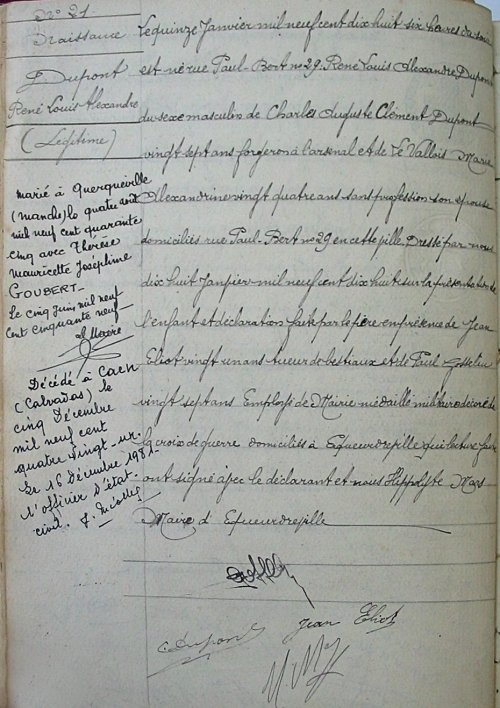 No 21
Naissance
Dupont
René Louis Alexandre
(Legitime)
Marié à Querqueville
(Manche) le quatre août
mil neuf cent quarante
cinq avec Thérèse
Mauricette Joséphine
GOUBERT_
Le cinq Juin mil neuf
cent cinquante neuf_
Le Maire
Décédé à Caen
(Calvados) le
cinq Décembre
mil neuf cent
quatre vingt-un_
Le 16 Décembre 1981_
L'officier d'état
civil.
Le quinze Janvier mil neuf cent dix huit six heures du soir
est né rue Paul-Bert no 29. René Louis Alexandre Dupont
du sexe masculin de Charles Auguste Clément Dupont
vingt sept ans forgeron à l'arsenal et de Le Vallois Marie
Alexandrine vingt quatre ans sans profession son épouse
domiciliés rue Paul-Bert no 29 en cette ville. Dressé par nous
dix huit Janvier mil neuf cent dix huit sur la présentation de
l'enfant et déclaration faite par le père en présence de Jean
Eliot vingt un ans tueur de bestiaux et de Paul Gosselin
vingt sept ans Employé de Mairie médaillé militaire décoré de
la croix de guerre domiciliés à Equeurdreville qui lecture faite
ont signé avec le déclarant et nous Hippolyte Mars
Maire d'Equeurdreville
C. Dupont
Jean Eliot